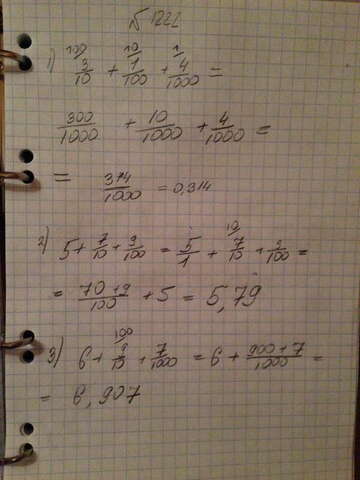 № 1221
1) 100/ 3/10 + 10/ 1/100 + 1/ 4/1000 =
300/1000 + 10/1000 + 4/1000 =
= 314/1000 = 0,314
2) 5 + 7/10 + 9/100 = 5/1 + 10/ 7/10 + 9/100 =
= 70+9/100 + 5 = 5,79
3) 6 + 100/ 9/10 + 7/1000 = 6 + 900+7/1000 =
= 6,907